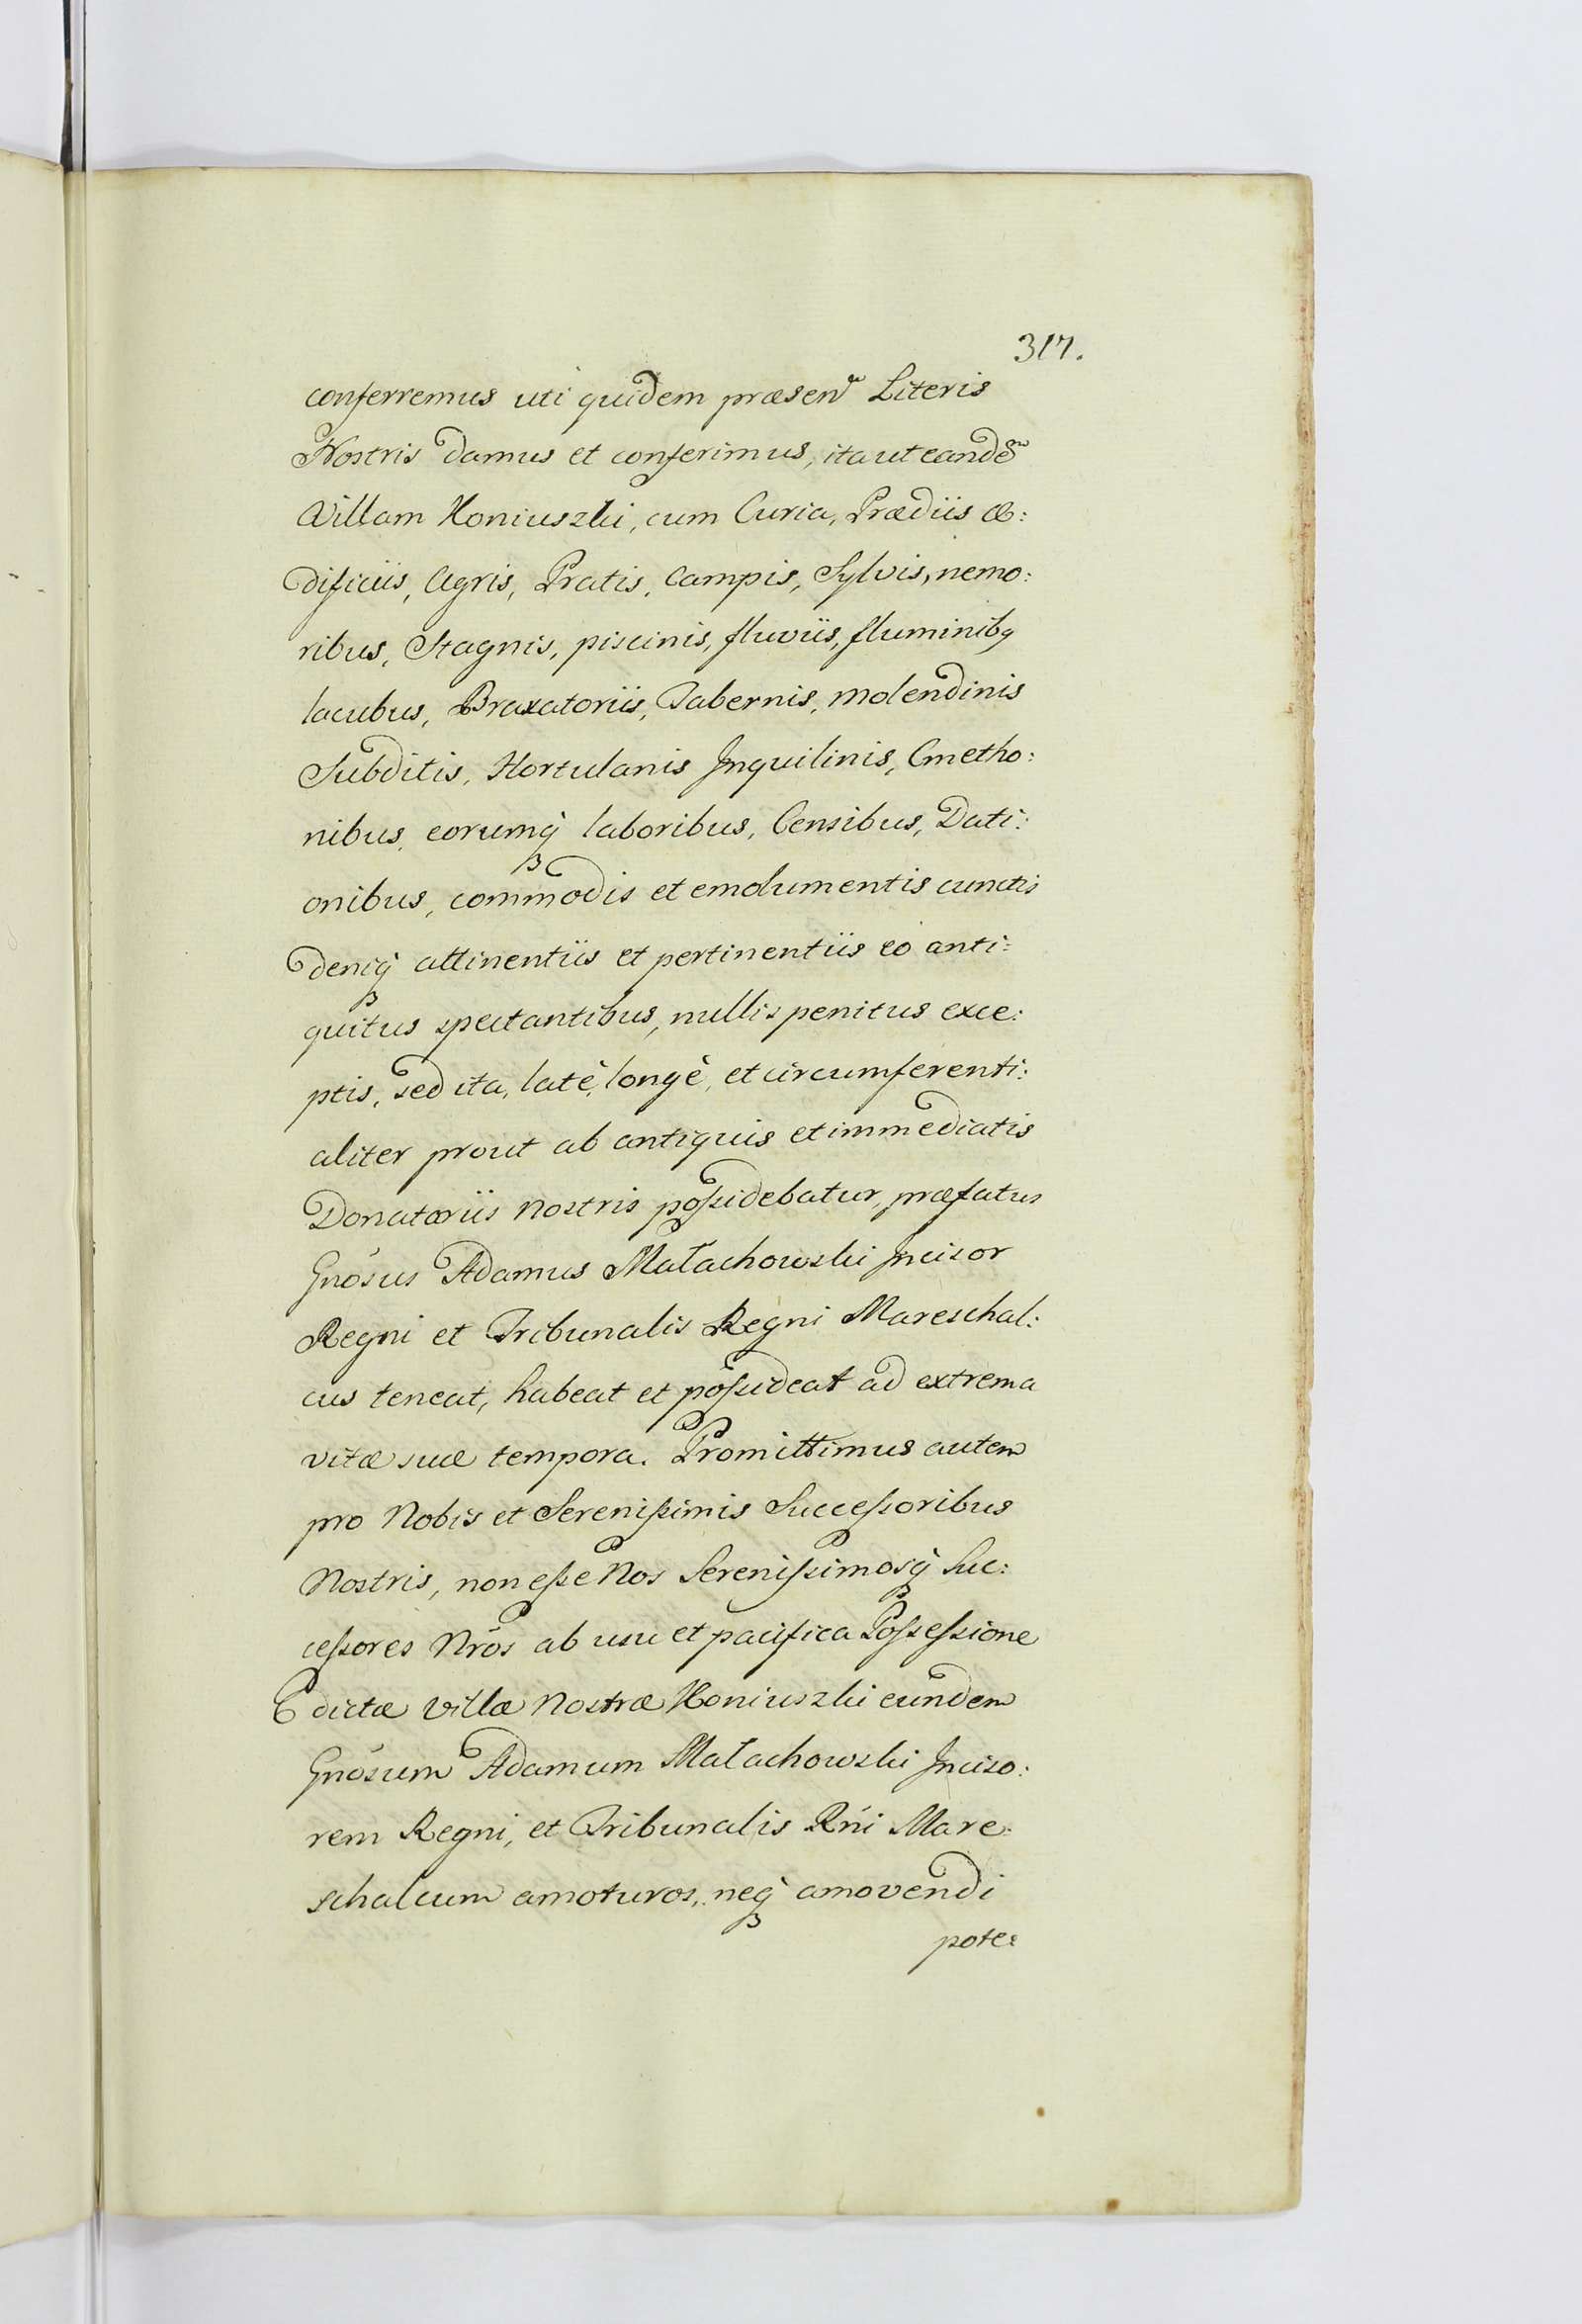 317.
conferremus uti quidem præsen Literis
Nostris damus et conferimus, ita ut eandē
Villam Koniuszki, cum Curia, Prædiis æ:
dificiis, Agris, Pratis, Campis, Sylvis, nemo:
ribus, Stagnis, piscinis, fluviis, fluminibq
lacubus, Braxatoriis, Tabernis, molendinis
Subditis, Hortulanis Jnquilinis, Cmetho:
nibus, eorumq̀ laboribus, Censibus, Dati:
onibus, com̄odis et emolumentis cunctis
deniq̀ attinentiis et pertinentiis eò anti:
quitus spectantibus, nullis penitus exce:
ptis, sed ita, latè, longè, et circumferenti:
aliter prout ab antiquis et immediatis
Donatariis nostris poſsidebatur, præfatus
Gnósus Adamus Małachowski Jncisor
Regni et Tribunalis Regni Mareschal:
cus teneat, habeat et poſsideat ad extrema
vitæ suæ tempora. Promittimus autem
pro Nobis et Sereniſsimis Succeſsoribus
Nostris, non eſse Nos Sereniſsimosq̀ Suc:
ceſsores Nrós ab usu et pacifica Poſseſsione
dictæ Villæ Nostræ Koniuszki eundem
Gnósum Adamum Małachowski Jnciso:
rem Regni, et Tribunalis Rńi Mare:
schalcum amoturos, neq̀ amovendi
pote: